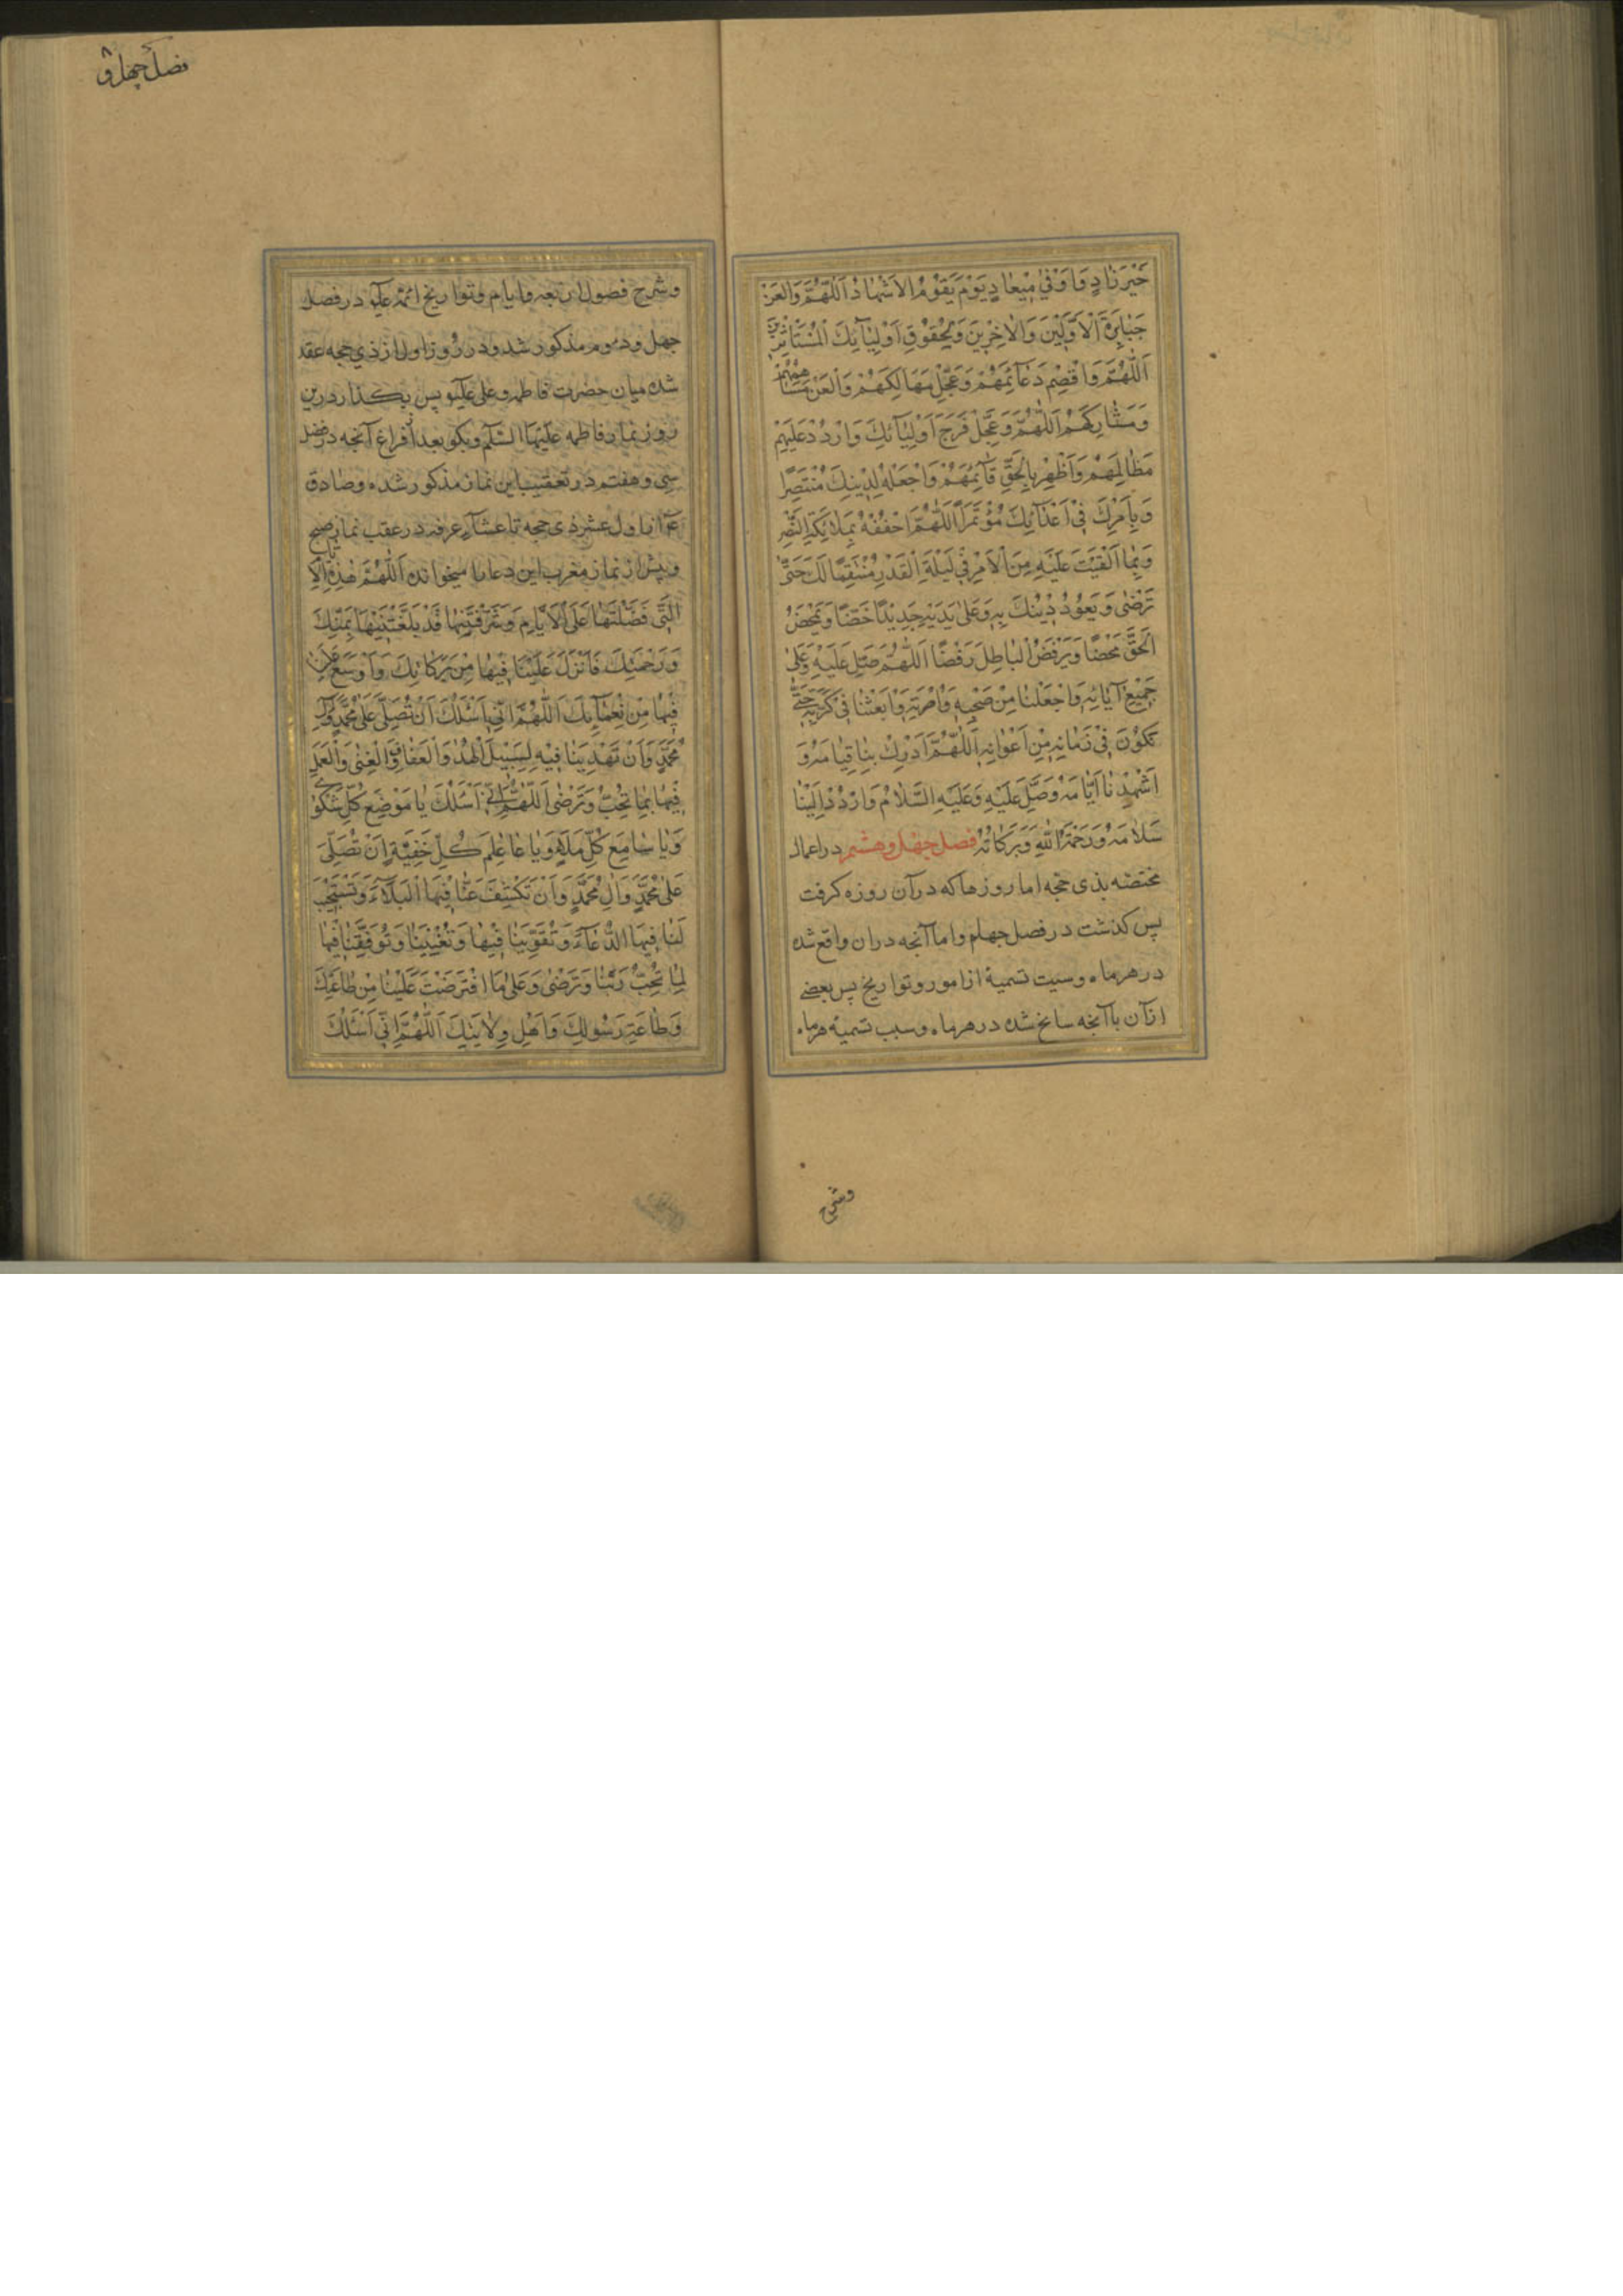 خَيْرَ نادٍ وَاَوْفىٰ مِيعادٍ يَوْمَ يَقُومُ الاَشْهادُ اَللّٰهُمَّ وَالْعَنْ
جَبابِرَةَ الْاَوَّلينَ وَالْاٰخِرينَ وَبِحُقُوقِ اَوْلِيٰآئِكَ الْمُسْتَأْثِرينَ
اَللّٰهُمَّ وَاقْصِمْ دَعآئِمَهُمْ وَعَجِّلْ مَهالِكَهُمْ وَالْعَنْ مُساهِمَهُمْ
وَمُشارِكَهُمْ اَللّٰهُمَّ وَعَجِّلْ فَرَجَ اَوْلِيٰآئِكَ وَارْدُدْ عَلَيْهِمْ
مَظالِمَهُمْ وَاَظْهِرْ بِالْحَقِّ قٰآئِمَهُمْ وَاجْعَلْهُ لِدينِكَ مُنْتَصِرًا
وَبِاَمْرِكَ فى اَعْدٰآئِكَ مُؤْتَمِرًا اَللّٰهُمَّ احْفُفْهُ بِمَلائِكَةِ النَّصْرِ
وَبِما اَلْقَيْتَ عَلَيْهِ مِنَ الْاَمْرِ فى لَيْلَةِ الْقَدْرِ مُنْتَقِمًا لَكَ حَتّىٰ
تَرْضىٰ وَيَعُودُ دِينُكَ بِهِ وَعَلىٰ يَدَيْهِ جَدِيدًا غَضًّا وَيَمْحَضُ
الْحَقَّ مَحْضًا وَيَرْفَضُ الْباطِلَ رَفْضًا اَللّٰهُمَّ صَلِّ عَلَيْهِ وَعَلىٰ
جَمِيعِ آبائِهِ وَاجْعَلْنا مِنْ صَحْبِهِ وَاُسْرَتِهِ وَابْعَثْنا فى كَرَّتِهِ حَتّىٰ
نَكُونَ فى زَمانِهِ مِنْ اَعْوانِهِ اَللّٰهُمَّ اَدْرِكْ بِنا قِيامَهُ وَ
اَشْهِدْنا اَيّامَهُ وَصَلِّ عَلَيْهِ وَعَلَيْهِ السَّلامُ وَارْدُدْ اِلَيْنا
سَلامَهُ وَرَحْمَةُ اللّٰهِ وَبَرَكاتُهُ فصل چهل و هشتم در اعمال
مختصّه بذى حجّه اما روزها كه در آن روزه كرفت
پس كذشت در فصل چهلم و اما آنچه دران واقع شده
در هر ماه و سبب تسميهٔ از امور و تواريخ پس بعضى
از آن با آنچه سانح شده در هر ماه و سبب تسميهٔ هر ماه
وشرح
فصل چهل و ۸
وشرح فصول اربعه و ايام و تواريخ ائمه عليهم در فصل
چهل و دوم مذكور شد و در روز اول از ذي حجه عقد
شده ميان حضرت فاطمه و على عليهم پس بكذارد درين
روز نماز فاطمه عليها السّلم و بكو بعد از فراغ آنچه در فصل
سى و هفتم در تعقيب اين نماز مذكور شده و صادق
ع از اول عشر ذى حجه تا عشآء عرفه در عقب نماز صبح
و پيش از نماز مغرب اين دعا را ميخوانده اَللّٰهُمَّ هٰذِهِ الْاَيّامُ
الَّتى فَضَّلْتَها عَلَى الْاَيّامِ وَشَرَّفْتَها قَدْ بَلَّغْتَنيها بِمَنِّكَ
وَرَحْمَتِكَ فَاَنْزِلْ عَلَيْنا فيها مِنْ بَرَكاتِكَ وَاَوْسِعْ عَلَيْنا
فيها مِنْ نَعْمٰآئِكَ اَللّٰهُمَّ اِنّى اَسْئَلُكَ اَنْ تُصَلِّىَ عَلىٰ مُحَمَّدٍ وَآلِ
مُحَمَّدٍ وَاَنْ تَهْدِيَنا فيهِ لِسَبيلِ الْهُدىٰ وَالْعَفافِ وَالْغِنىٰ وَالْعَمَلِ
فيها بِما تُحِبُّ وَتَرْضىٰ اَللّٰهُمَّ اِنّى اَسْئَلُكَ يا مَوْضِعَ كُلِّ شَكْوىٰ
وَيا سامِعَ كُلِّ مَلَاءٍ وَيا عالِمَ كُلِّ خَفِيَّةٍ اَنْ تُصَلِّىَ
عَلىٰ مُحَمَّدٍ وَآلِ مُحَمَّدٍ وَاَنْ تَكْشِفَ عَنّا فيهَا الْبَلآءَ وَتَسْتَجيبَ
لَنا فيهَا الدُّعآءَ وَتُقَوِّيَنا فيها وَتُعينَنا وَتُوَفِّقَنا فيها
لِما تُحِبُّ رَبَّنا وَتَرْضىٰ وَعَلىٰ مَا افْتَرَضْتَ عَلَيْنا مِنْ طاعَتِكَ
وَطاعَةِ رَسُولِكَ وَاَهْلِ وِلايَتِكَ اَللّٰهُمَّ اِنّى اَسْئَلُكَ